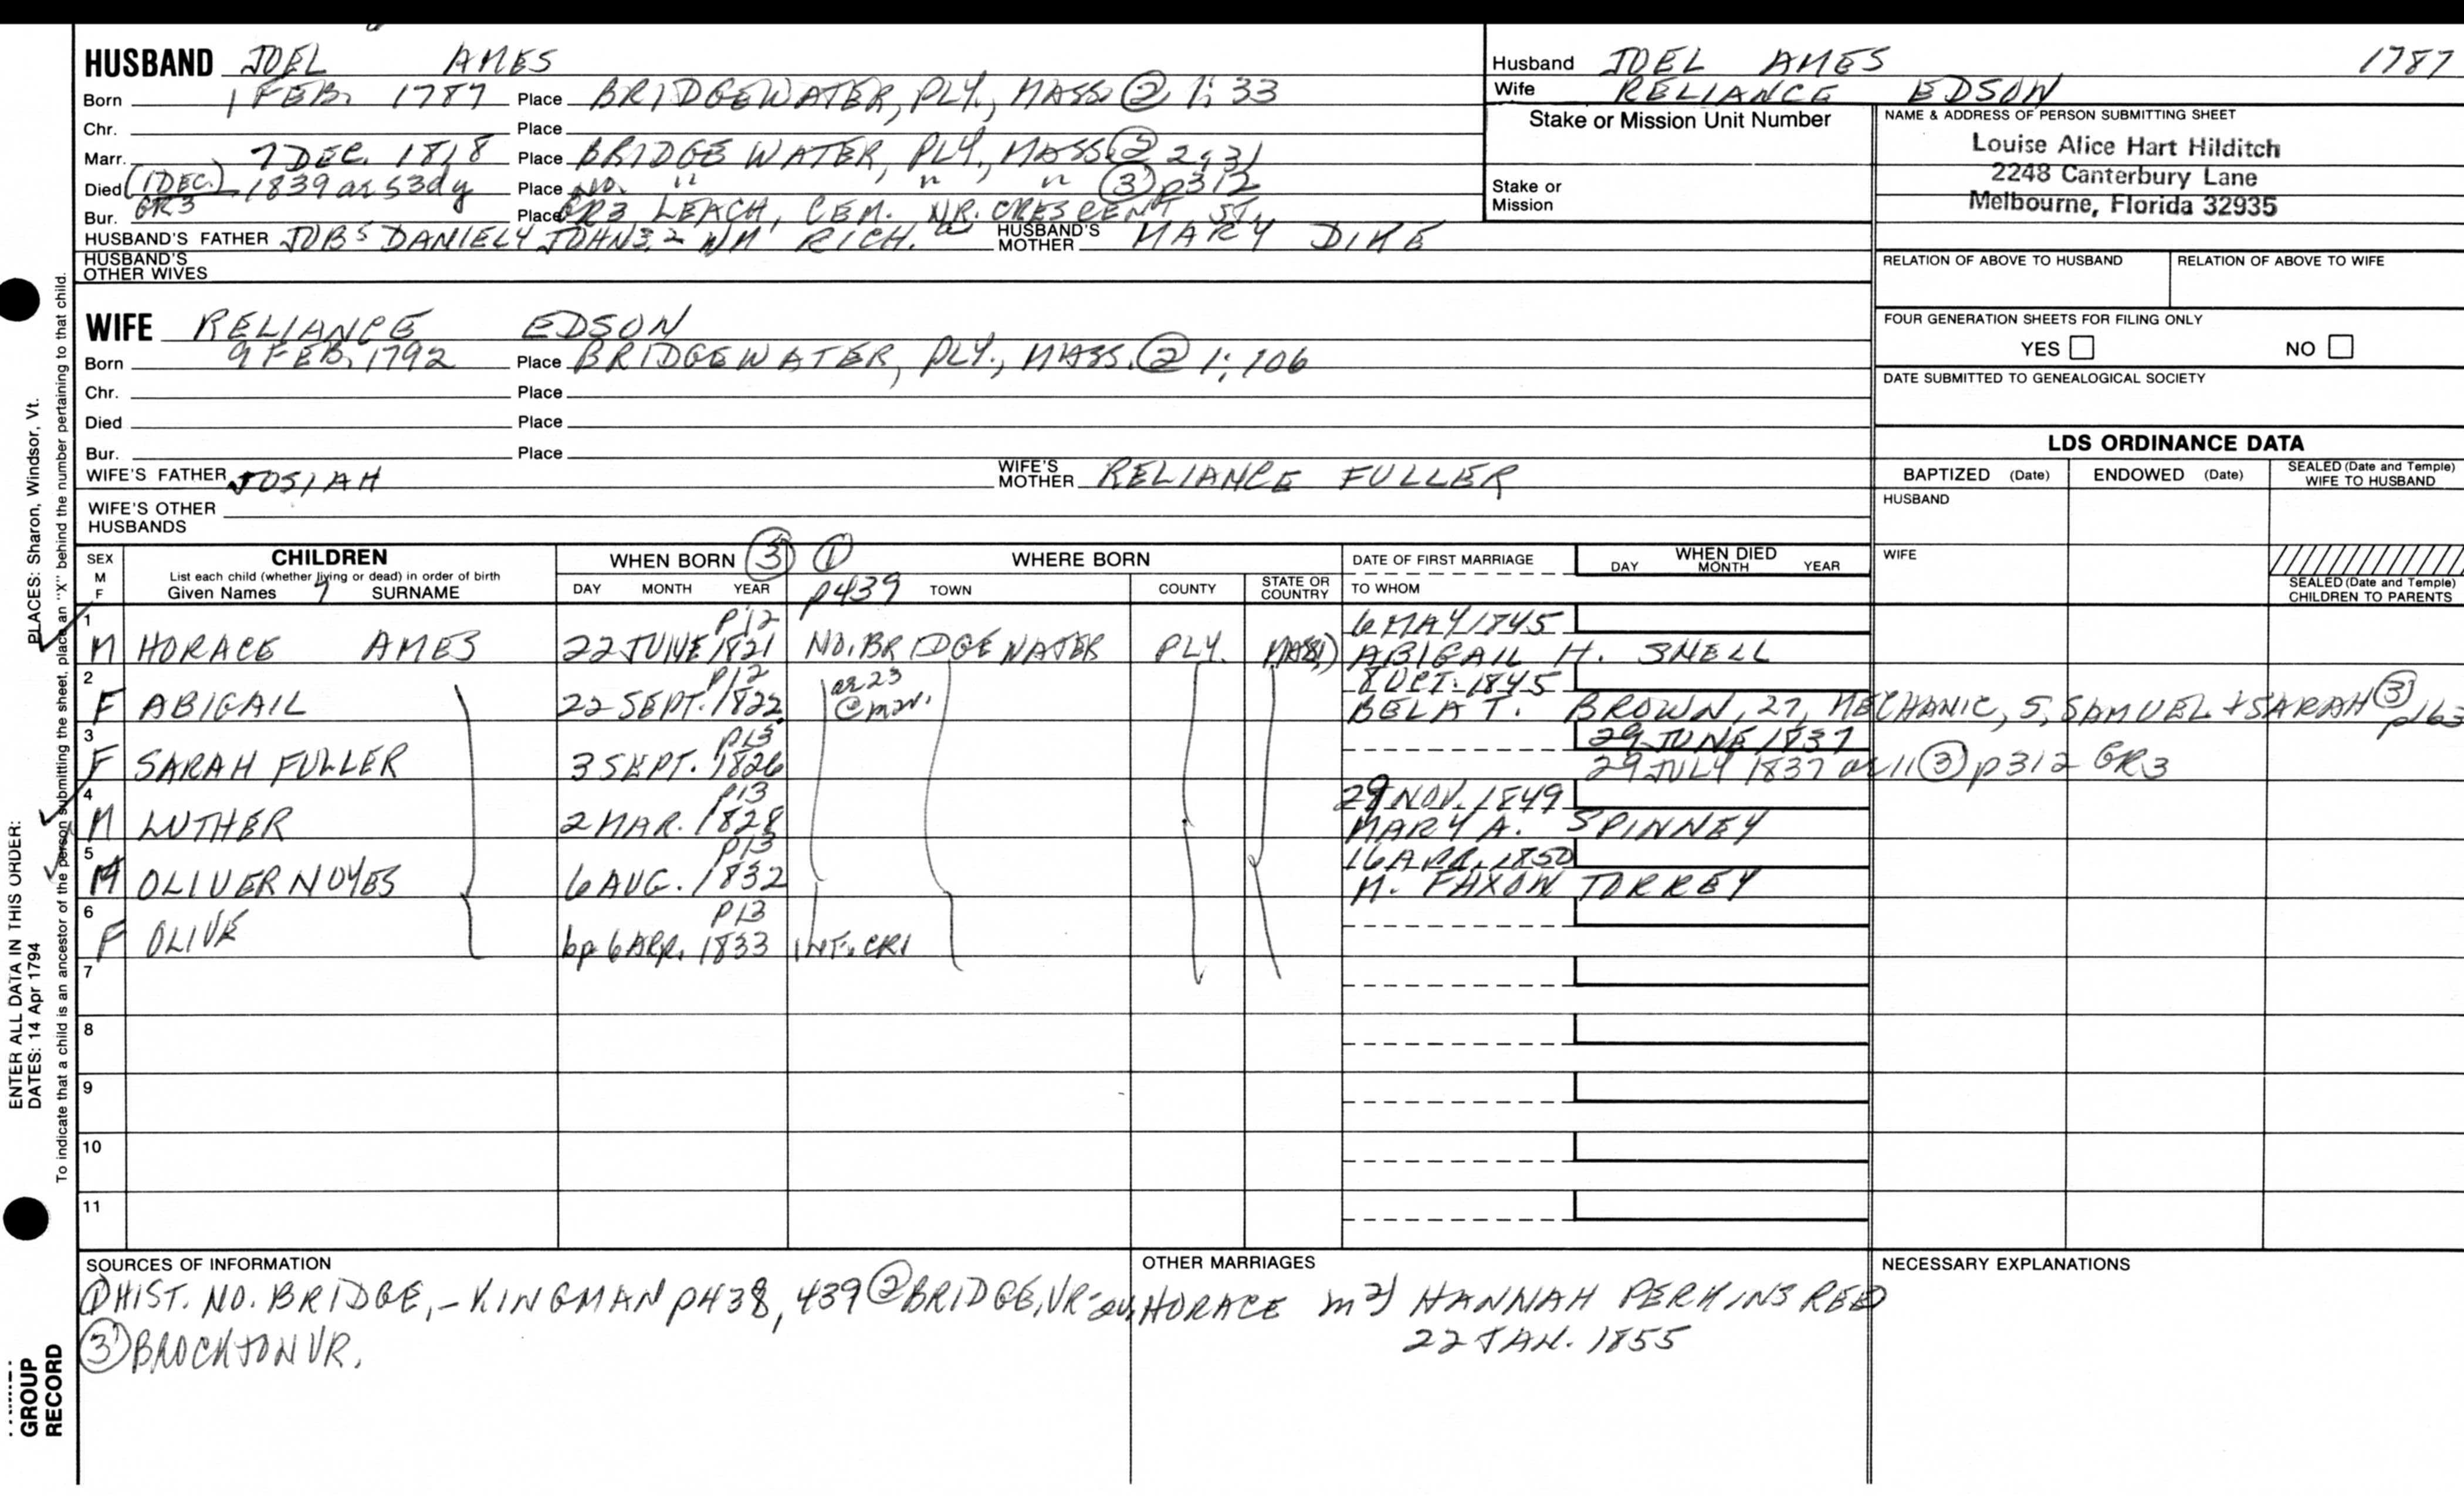 HUSBAND JOEL AMES
Born 1 FEB. 1787 Place BRIDGEWATER, PLY., MASS. ② 1:33
Chr. Place
Marr. 7 DEC. 1818 Place BRIDGEWATER, PLY., MASS. ② 2:31
Died (1 DEC.) 1839 ae 53dy Place NO. " , " " ③ p312
Bur. GR3 Place GR3 LEACH, CEM. NR. CRESCENT ST.
HUSBAND'S FATHER JOB⁵ DANIEL⁴ JOHN³,² WM' RICH. HUSBAND'S MOTHER MARY DIKE
HUSBAND'S OTHER WIVES
Husband JOEL AMES 1787
Wife RELIANCE EDSON
Stake or Mission Unit Number
Stake or Mission
NAME & ADDRESS OF PERSON SUBMITTING SHEET
Louise Alice Hart Hilditch
2248 Canterbury Lane
Melbourne, Florida 32935
RELATION OF ABOVE TO HUSBAND RELATION OF ABOVE TO WIFE
FOUR GENERATION SHEETS FOR FILING ONLY
YES NO
DATE SUBMITTED TO GENEALOGICAL SOCIETY
WIFE RELIANCE EDSON
Born 9 FEB. 1792 Place BRIDGEWATER, PLY., MASS. ② 1:106
Chr. Place
Died Place
Bur. Place
WIFE'S FATHER JOSIAH WIFE'S MOTHER RELIANCE FULLER
WIFE'S OTHER HUSBANDS
LDS ORDINANCE DATA
BAPTIZED (Date) ENDOWED (Date) SEALED (Date and Temple) WIFE TO HUSBAND
HUSBAND
WIFE
SEALED (Date and Temple) CHILDREN TO PARENTS
SEX M F CHILDREN List each child (whether living or dead) in order of birth Given Names SURNAME
WHEN BORN ③ DAY MONTH YEAR
① p439 WHERE BORN TOWN COUNTY STATE OR COUNTRY
DATE OF FIRST MARRIAGE TO WHOM
WHEN DIED DAY MONTH YEAR
1 p12 6 MAY 1845
M HORACE AMES 22 JUNE 1821 NO. BRIDGEWATER PLY. MASS. ABIGAIL H. SNELL
2 p12 ae 23 8 OCT. 1845
F ABIGAIL 22 SEPT. 1822 @ mar. BELA T. BROWN, 27, MECHANIC, S, SAMUEL + SARAH ③ p163
3 p13 29 JUNE 1837
F SARAH FULLER 3 SEPT. 1826 29 JULY 1837 ae 11 ③ p312 GR3
4 p13 29 NOV. 1849
M LUTHER 2 MAR. 1828 MARY A. SPINNEY
5 p13 16 APR. 1850
M OLIVER NOYES 6 AUG. 1832 M. FAXON TORREY
6 p13
F OLIVE bp 6 APR. 1833 INT. CR1
7
8
9
10
11
SOURCES OF INFORMATION
① HIST. NO. BRIDGE, - KINGMAN p438, 439 ② BRIDGE, VR
③ BROCKTON VR.
OTHER MARRIAGES
HORACE m 2) HANNAH PERKINS REED
22 JAN. 1855
NECESSARY EXPLANATIONS
ENTER ALL DATA IN THIS ORDER:
DATES: 14 Apr 1794 PLACES: Sharon, Windsor, Vt.
To indicate that a child is an ancestor of the person submitting the sheet, place an "X" behind the number pertaining to that child.
GROUP
RECORD